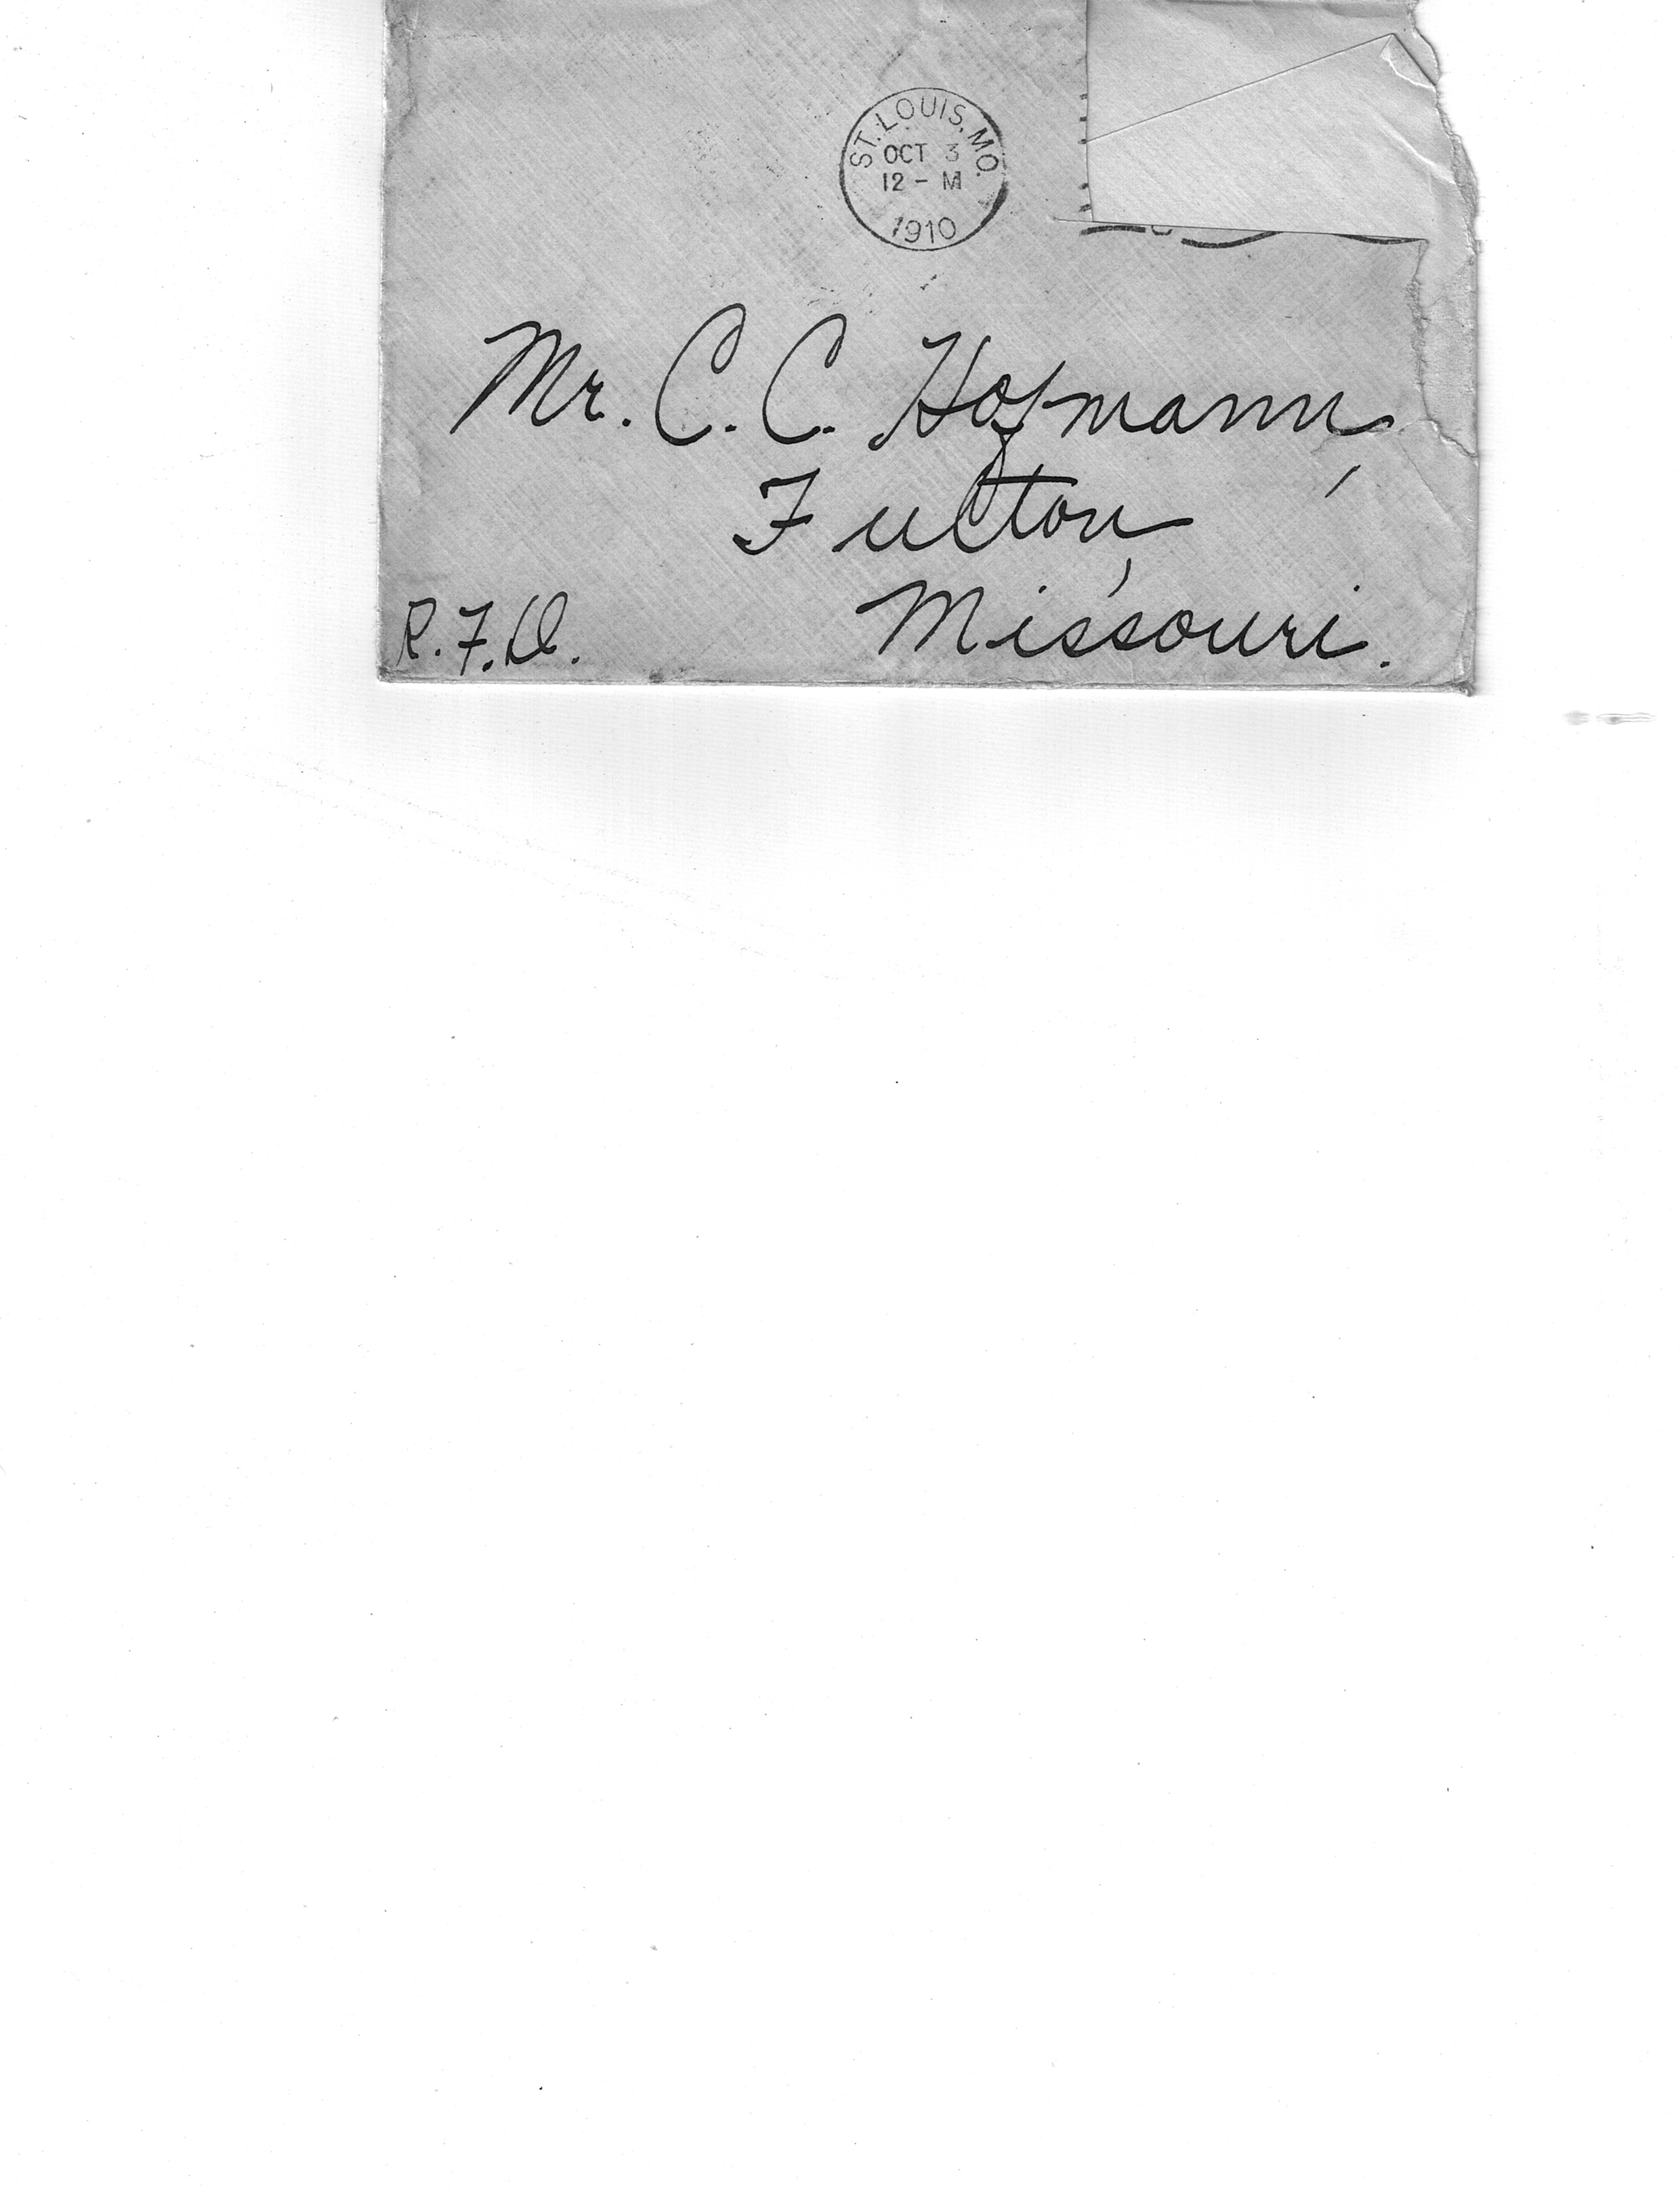 ST. LOUIS, MO.
OCT 3
12 - M
1910
Mr. C. C. Hofmann,
Fulton,
Missouri.
R.F.D.